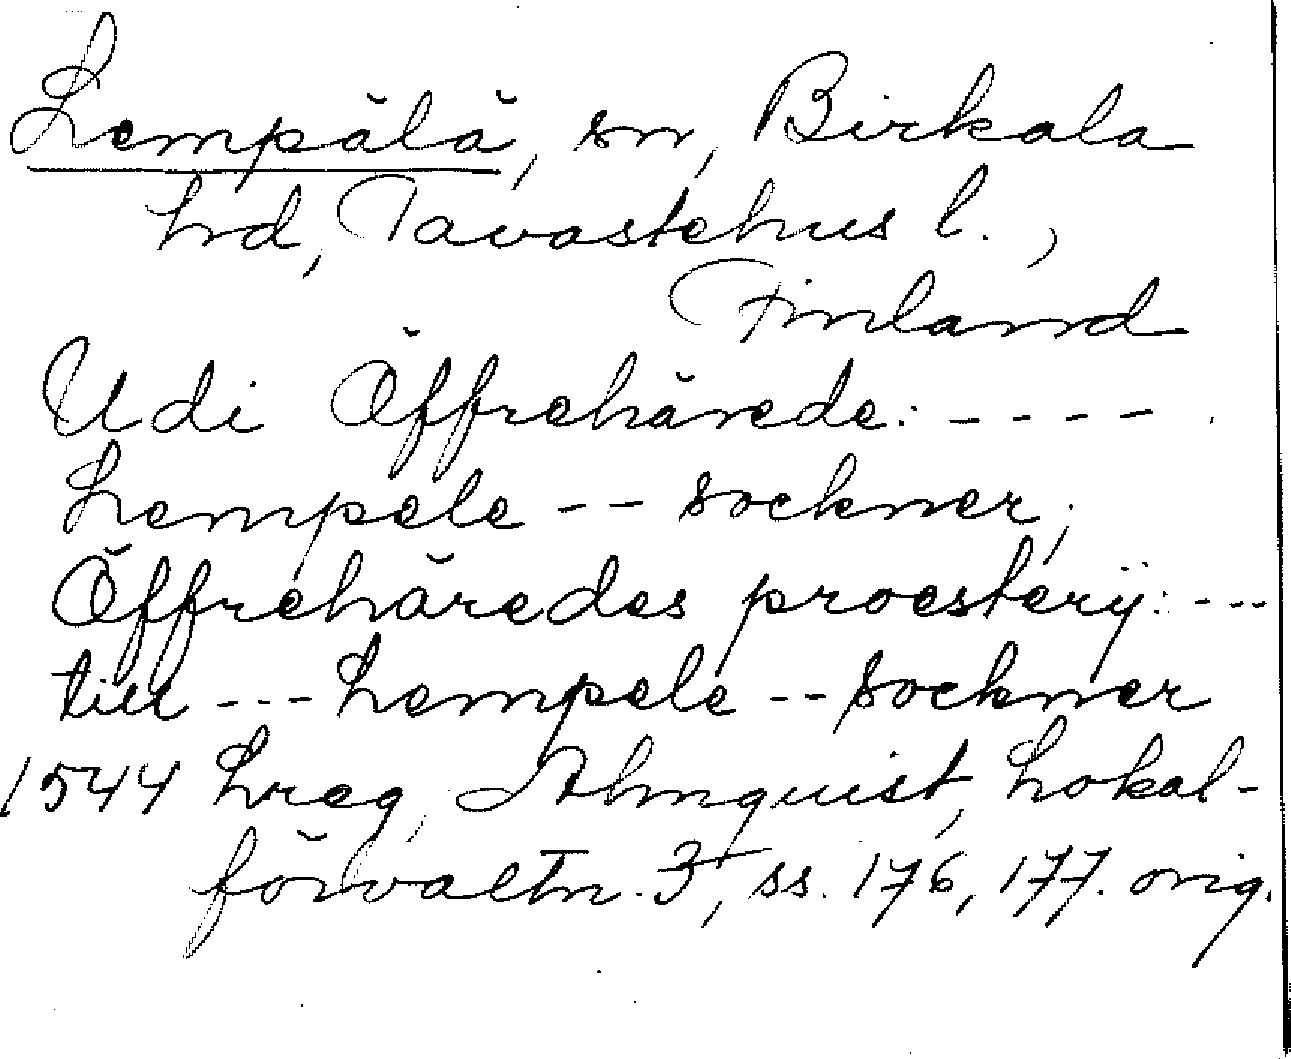 Lempälä, sn, Birkala
hd, Tavastehus l.,
Finland
Udi Öffrehärede: - - - -
Lempele - - sockner;
Öffrehäredes proesterij: - - -
till - - - Lempele - - sockner
1544 hreg, Almquist, Lokal-
förvaltn. 3, ss. 176, 177. orig.